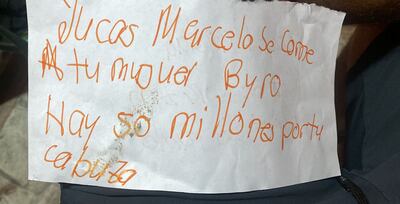 Jucas Marcelo se come
A tu muguer Byro
Hay 50 millones por tu
cabeza